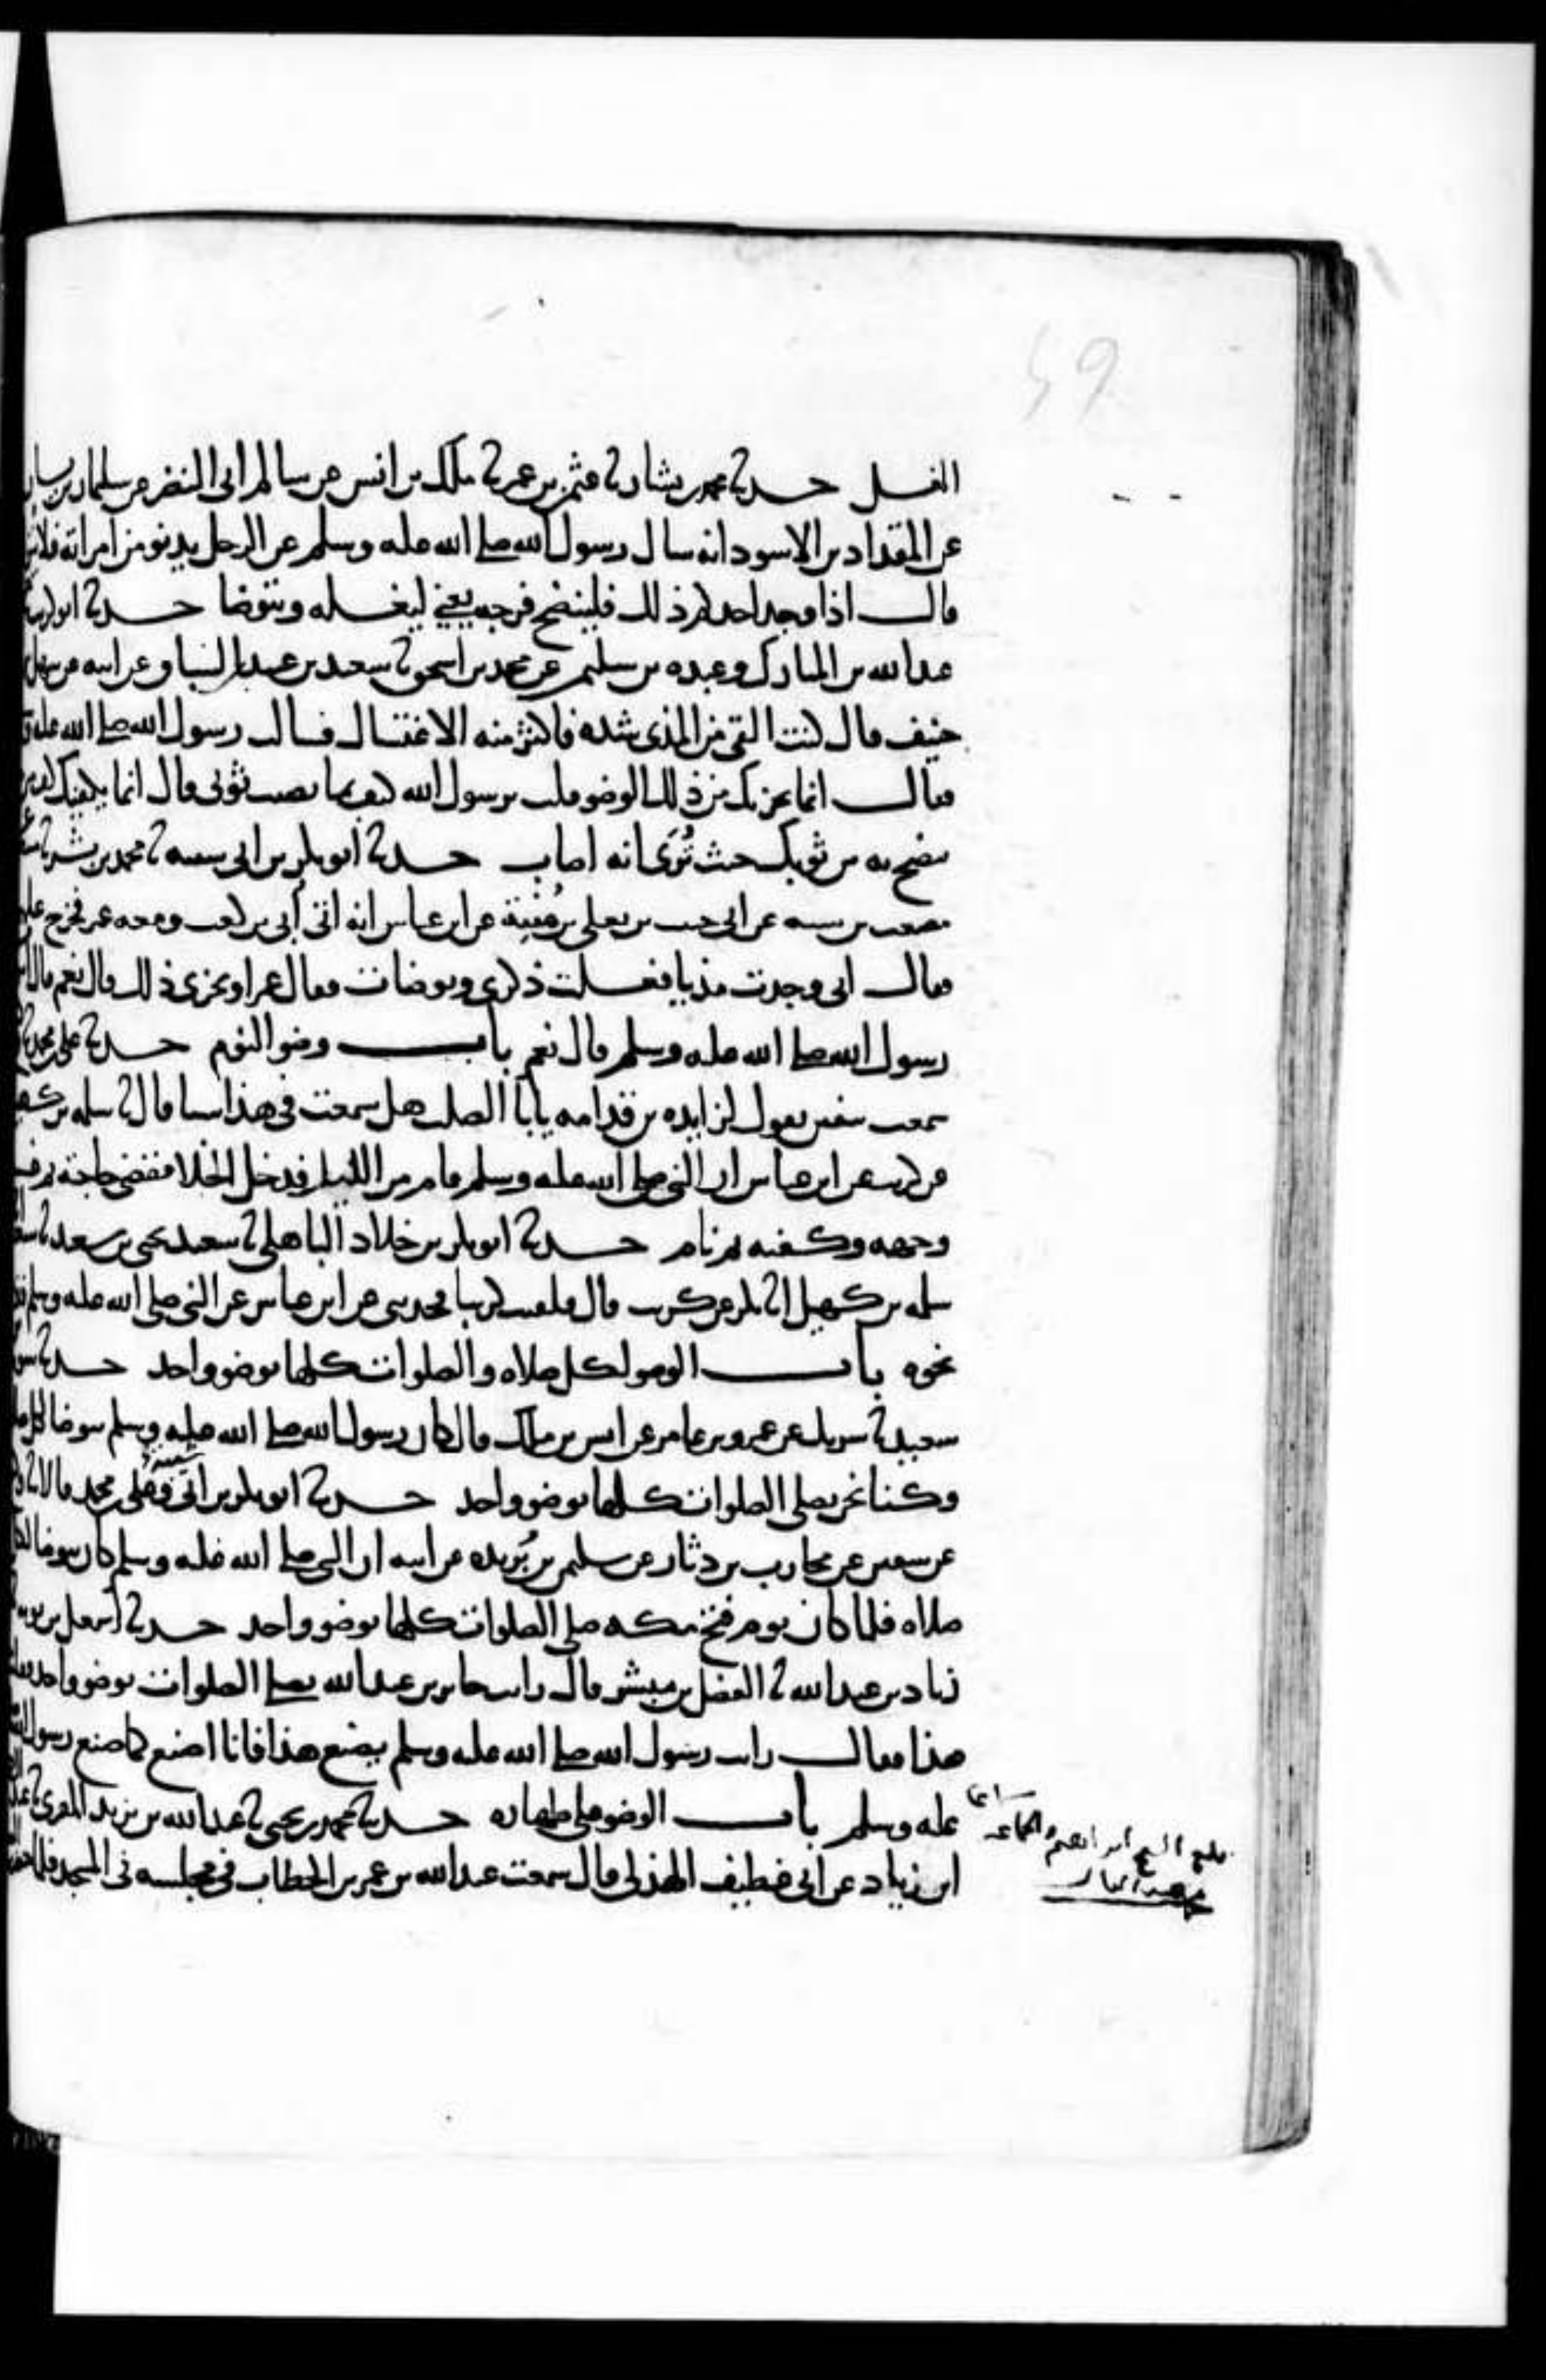 الغسل حدثنا محمد بن بشار ثنا عثمن بن عمر ثنا ملك بن انس عن سالم ابي النضر عن سليمان بن يسار
عن المقداد بن الاسود انه سال رسول الله صلى الله عليه وسلم عن الرجل يدنو من امراته فلا ينزل
قال اذا وجد احدكم ذلك فلينضح فرجه يعني ليغسله ويتوضا حدثنا ابو كريب
عبد الله بن المبارك وعبده بن سليمن عن محمد بن اسحق ثنا سعيد بن عبيد بن السباق عن ابيه عن سهل بن
حنيف قال كنت القى من المذي شده فاكثر منه الاغتسال فسالت رسول الله صلى الله عليه و
فقال انما يجزيك من ذلك الوضو قلت يرسول الله كيف بما يصيب ثوبي قال انما يكفيك كف من
تنضح به من ثوبك حيث تُرَى انه اصاب حدثنا ابو بكر بن ابي شيبه ثنا محمد بن بشر ثنا مسعر
مصعب بن شيبه عن ابي حبيب بن يعلى بن مُنْيَة عن ابن عباس انه اتى اُبي بن كعب ومعه عمر فخرج عليهما
فقال اني وجدت مذيا فغسلت ذكري وتوضات فقال عمر او يجزي ذلك قال نعم قال
رسول الله صلى الله عليه وسلم قال نعم باب وضو النوم حدثنا علي بن محمد ثنا
سمعت سفين يقول لزايده بن قدامه يابا الصلت هل سمعت في هذا شيا قال ثنا سلمه بن كهيل
عن كريب عن ابن عباس ان النبي صلى الله عليه وسلم قام من الليل فدخل الخلا فقضى حاجته ثم غسل
وجهه وكفيه ثم نام حدثنا ابو بكر بن خلاد الباهلي ثنا سعيد يحيى بن سعيد ثنا شعبه
سلمه بن كهيل انا بكير عن كريب قال فلقيت كريبا فحدثني عن ابن عباس عن النبي صلى الله عليه وسلم فذكر
نحوه باب الوضو لكل صلاه والصلوات كلها بوضو واحد حدثنا سويد
سعيد ثنا شريك عن عمرو بن عامر عن انس بن ملك قال كان رسول الله صلى الله عليه وسلم يتوضا لكل صلاه
وكنا نحن نصلي الصلوات كلها بوضو واحد حدثنا ابو بكر بن ابي شيبة وعلي بن محمد قالا ثنا وكيع
عن سفين عن محارب بن دثار عن سليمن بن بُريده عن ابيه ان النبي صلى الله عليه وسلم كان يتوضا لكل
صلاه فلما كان يوم فتح مكه صلى الصلوات كلها بوضو واحد حدثنا اسمعيل بن توبه ثنا
زياد بن عبد الله ثنا الفضل بن مبشر قال رايت جابر بن عبد الله يصلي الصلوات بوضو واحد فقلت
هذا فقال رايت رسول الله صلى الله عليه وسلم يصنع هذا فانا اصنع كما صنع رسول الله
عليه وسلم باب الوضو على طهاره حدثنا محمد بن يحيى ثنا عبد الله بن يزيد المقرئ ثنا عبد
ابن زياد عن ابي غطيف الهذلي قال سمعت عبد الله بن عمر بن الخطاب في مجلسه في المسجد فلما حضرت